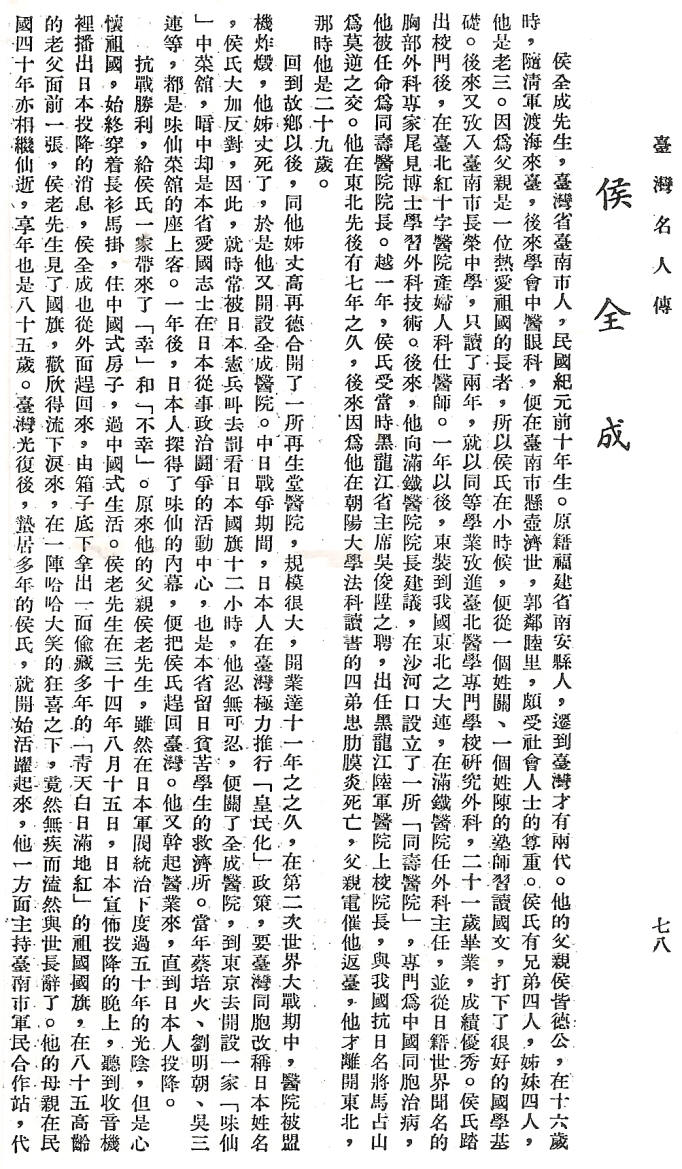 臺灣名人傳
七八
侯全成
侯全成先生，臺灣省臺南市人，民國紀元前十年生。原籍福建省南安縣人，遷到臺灣才有兩代。他的父親侯皆德公，在十六歲
時，隨淸軍渡海來臺，後來學會中醫眼科，便在臺南市懸壺濟世，郭鄰睦里，頗受社會人士的尊重。侯氏有兄弟四人，姊妹四人，
他是老三。因爲父親是一位熱愛祖國的長者，所以侯氏在小時候，便從一個姓關、一個姓陳的塾師習讀國文，打下了很好的國學基
礎。後來又攷入臺南市長榮中學，只讀了兩年，就以同等學業攷進臺北醫學專門學校硏究外科，二十一歲畢業，成績優秀。侯氏踏
出校門後，在臺北紅十字醫院產婦人科仕醫師。一年以後，束裝到我國東北之大連，在滿鐵醫院任外科主任，並從日籍世界聞名的
胸部外科專家尾見博士學習外科技術。後來，他向滿鐵醫院院長建議，在沙河口設立了一所「同壽醫院」，專門爲中國同胞治病，
他被任命爲同壽醫院院長。越一年，侯氏受當時黑龍江省主席吳俊陞之聘，出任黑龍江陸軍醫院上校院長，與我國抗日名將馬占山
爲莫逆之交。他在東北先後有七年之久，後來因爲他在朝陽大學法科讀書的四弟患肋膜炎死亡，父親電催他返臺，他才離開東北，
那時他是二十九歲。
回到故鄕以後，同他姊丈高再德合開了一所再生堂醫院，規模很大，開業達十一年之久，在第二次世界大戰期中，醫院被盟
機炸燬，他姊丈死了，於是他又開設全成醫院。中日戰爭期間，日本人在臺灣極力推行「皇民化」政策，要臺灣同胞改稱日本姓名
，侯氏大加反對，因此，就時常被日本憲兵叫去罰看日本國旗十二小時，他忍無可忍，便關了全成醫院，到東京去開設一家「味仙
」中菜館，暗中却是本省愛國志士在日本從事政治鬪爭的活動中心，也是本省留日貧苦學生的救濟所。當年蔡培火、劉明朝、吳三
連等，都是味仙菜舘的座上客。一年後，日本人探得了味仙的內幕，便把侯氏趕回臺灣。他又幹起醫業來，直到日本人投降。
抗戰勝利，給侯氏一家帶來了「幸」和「不幸」。原來他的父親侯老先生，雖然在日本軍閥統治下度過五十年的光陰，但是心
懷祖國，始終穿着長衫馬掛，住中國式房子，過中國式生活。侯老先生在三十四年八月十五日，日本宣佈投降的晚上，聽到收音機
裡播出日本投降的消息，侯全成也從外面趕回來，由箱子底下拿出一面偸藏多年的「靑天白日滿地紅」的祖國國旗，在八十五高齡
的老父面前一張，侯老先生見了國旗，歡欣得流下淚來，在一陣哈哈大笑的狂喜之下，竟然無疾而溘然與世長辭了。他的母親在民
國四十年亦相繼仙逝，享年也是八十五歲。臺灣光復後，蟄居多年的侯氏，就開始活躍起來，他一方面主持臺南市軍民合作站，代